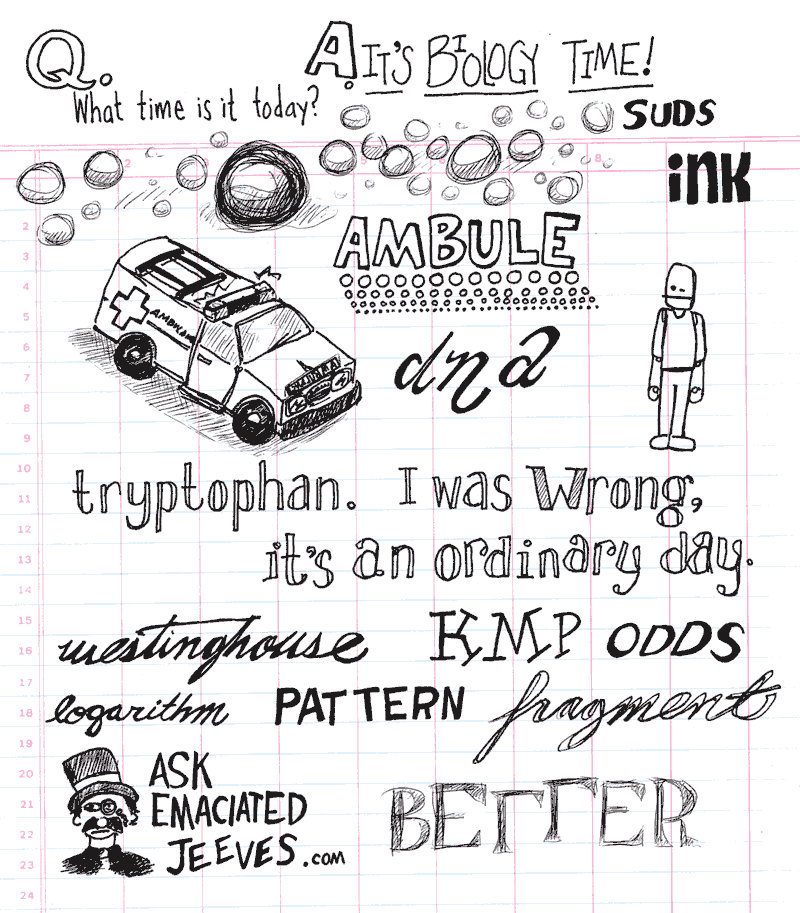 Q.
What time is it today?
A. IT'S BIOLOGY TIME!
SUDS
ink
AMBULE
dna
tryptophan. I was Wrong,
it's an ordinary day.
westinghouse KMP ODDS
logarithm PATTERN fragment
ASK
EMACIATED
JEEVES.com
BETTER
2
3
8
2
3
4
5
6
7
8
9
10
11
12
13
14
15
16
17
18
19
20
21
22
23
24